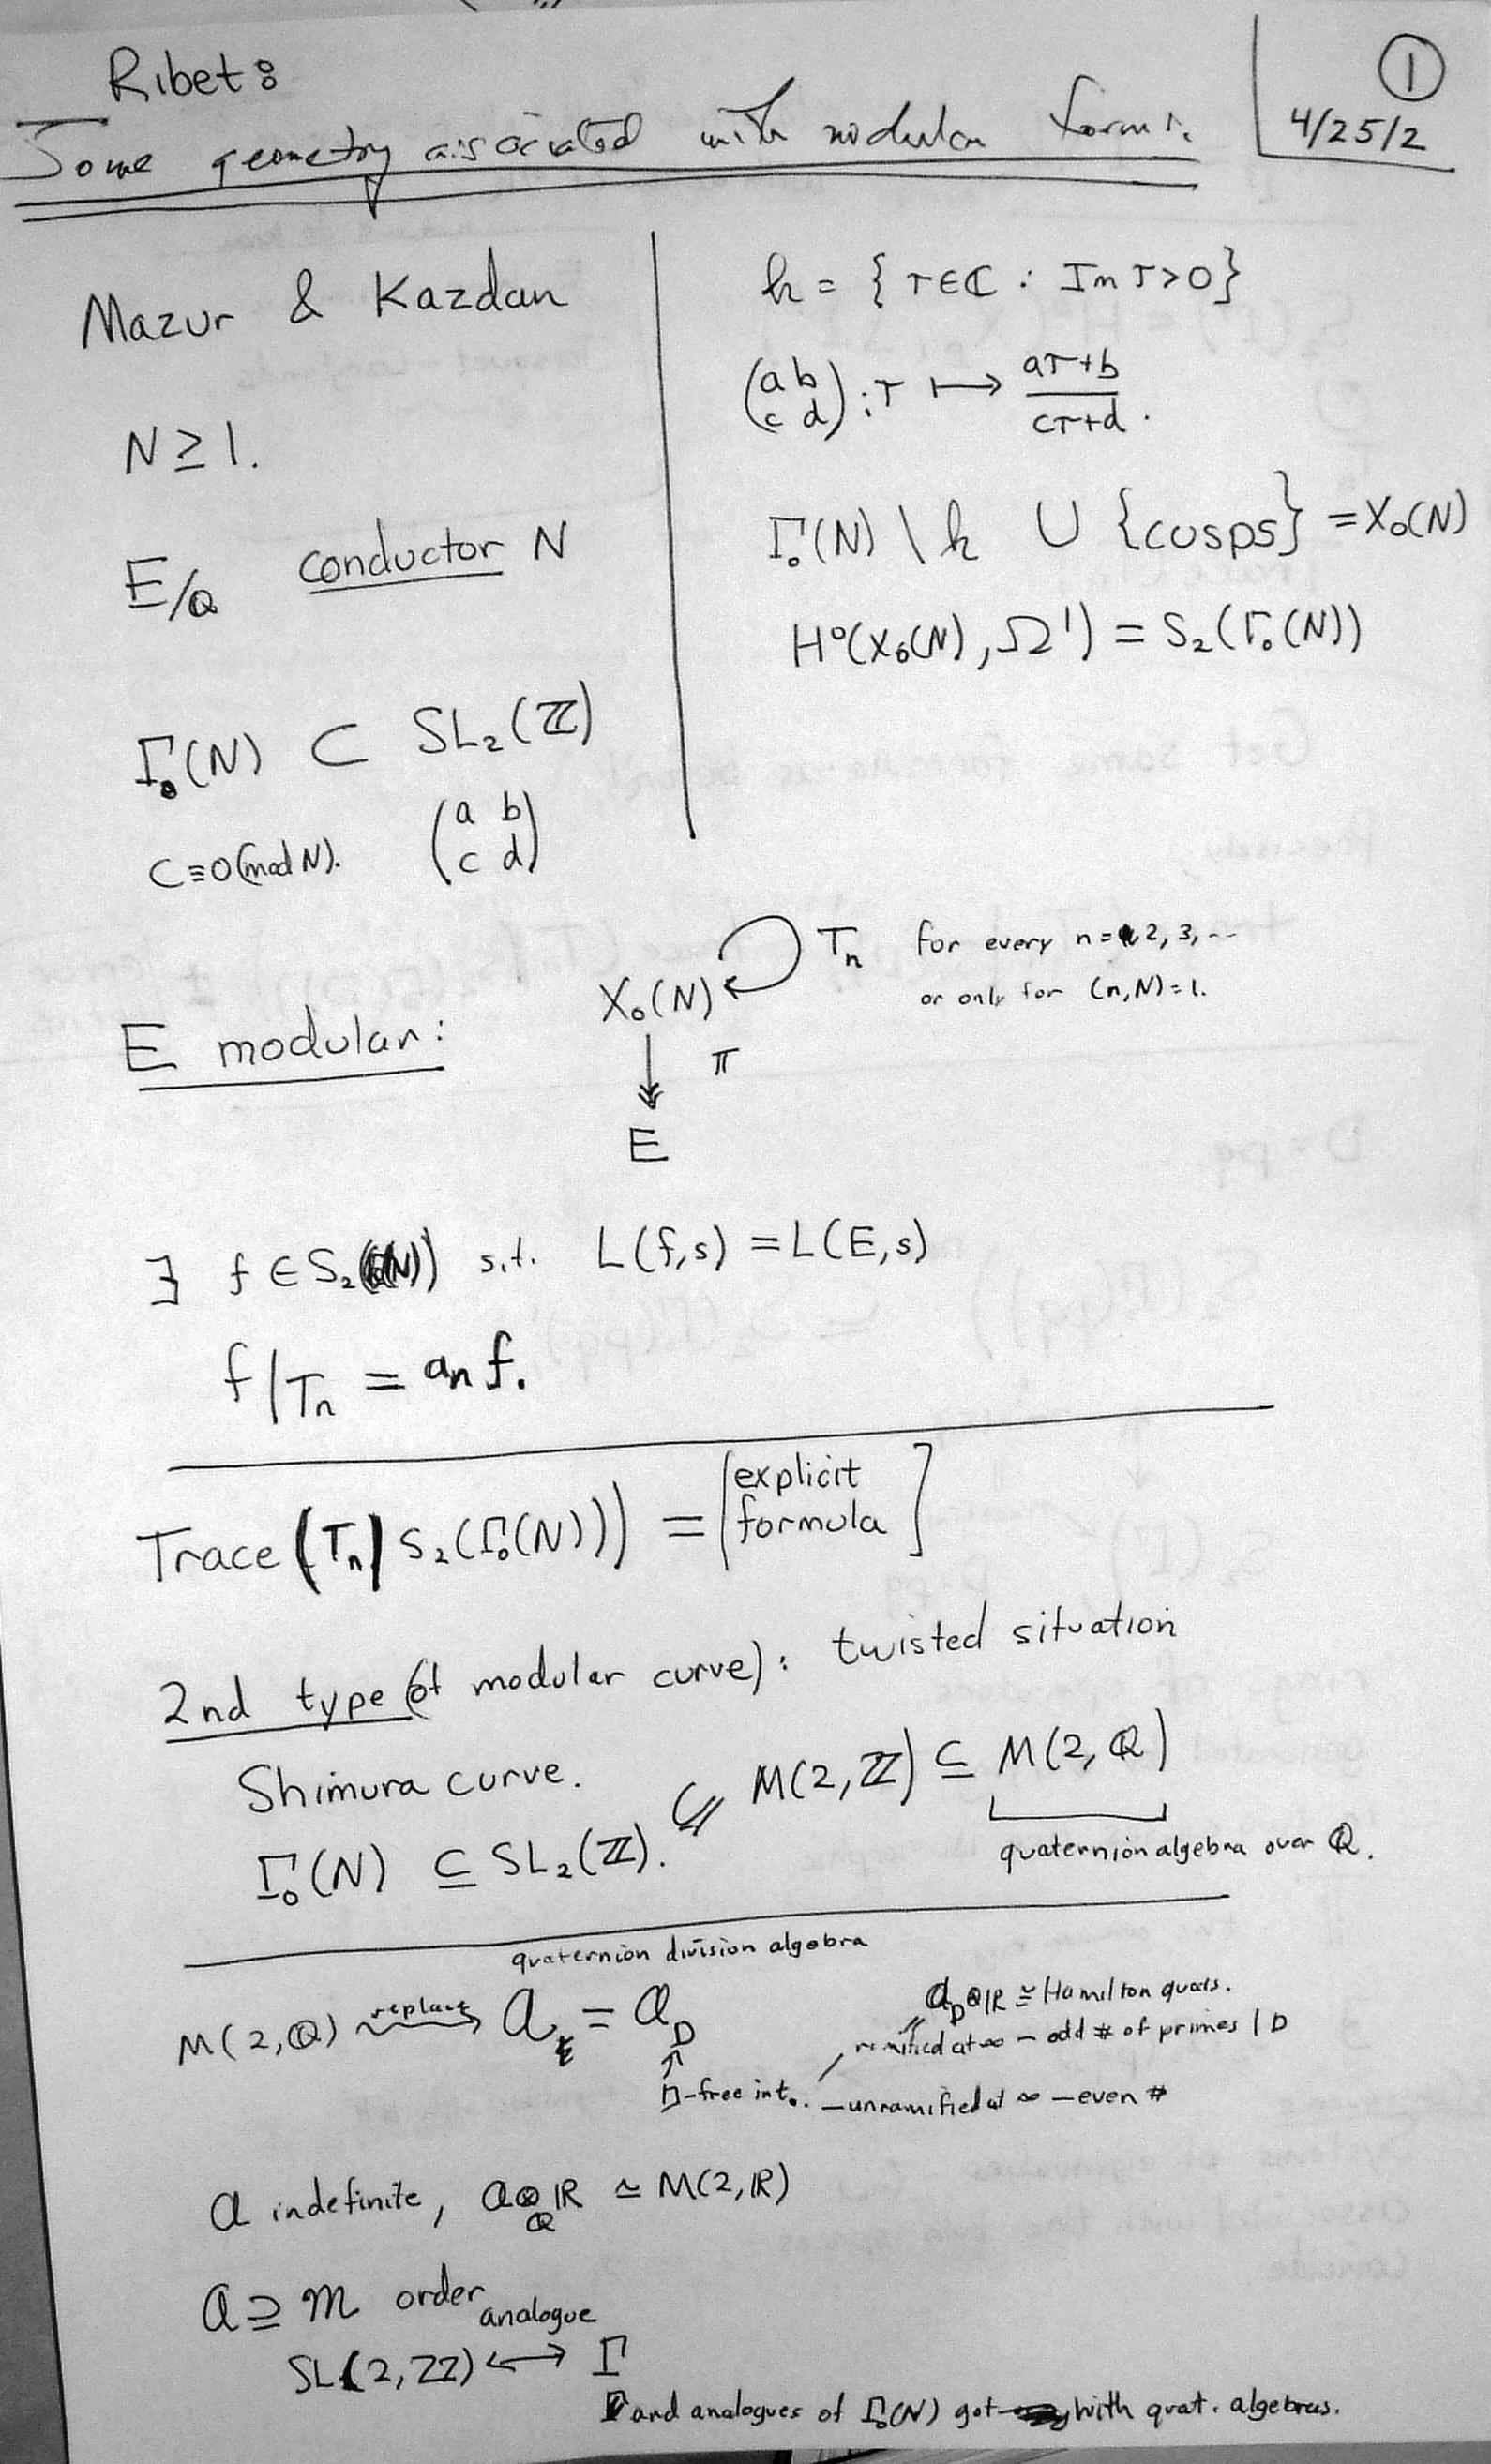 Ribet:
Some geometry associated with modular forms.
①
4/25/2
Mazur & Kazdan
N ≥ 1.
E/Q conductor N
Γ₀(N) ⊂ SL₂(ℤ)
C≡0(mod N). (a b
c d)
h = { τ∈ℂ : Im τ>0}
(a b
c d) : τ ↦ aτ+b
cτ+d.
Γ₀(N) \ h ∪ {cusps} = X₀(N)
H⁰(X₀(N), Ω¹) = S₂(Γ₀(N))
E modular:
X₀(N) Tₙ for every n = 2, 3, --
or only for (n,N)=1.
↓ π
E
∃ f ∈ S₂((N)) s.t. L(f,s) = L(E,s)
f|Tₙ = aₙ f.
Trace (Tₙ| S₂(Γ₀(N))) = [explicit
formula]
2nd type (of modular curve): twisted situation
Shimura curve.
Γ₀(N) ⊆ SL₂(ℤ). ⊆ M(2,ℤ) ⊆ M(2,ℚ)
quaternion algebra over ℚ.
quaternion division algebra
M(2,ℚ) replace → 𝒜 = 𝒜_D
↑
□-free int.
𝒜_D⊗ℝ ≅ Hamilton quats.
ramified at ∞ – odd # of primes | D
– unramified at ∞ – even #
𝒜 indefinite, 𝒜⊗_ℚ ℝ ≃ M(2,ℝ)
𝒜 ⊇ 𝔐 order
analogue
SL(2,ℤ) ↔ Γ
Γ and analogues of Γ₀(N) got with quat. algebras.